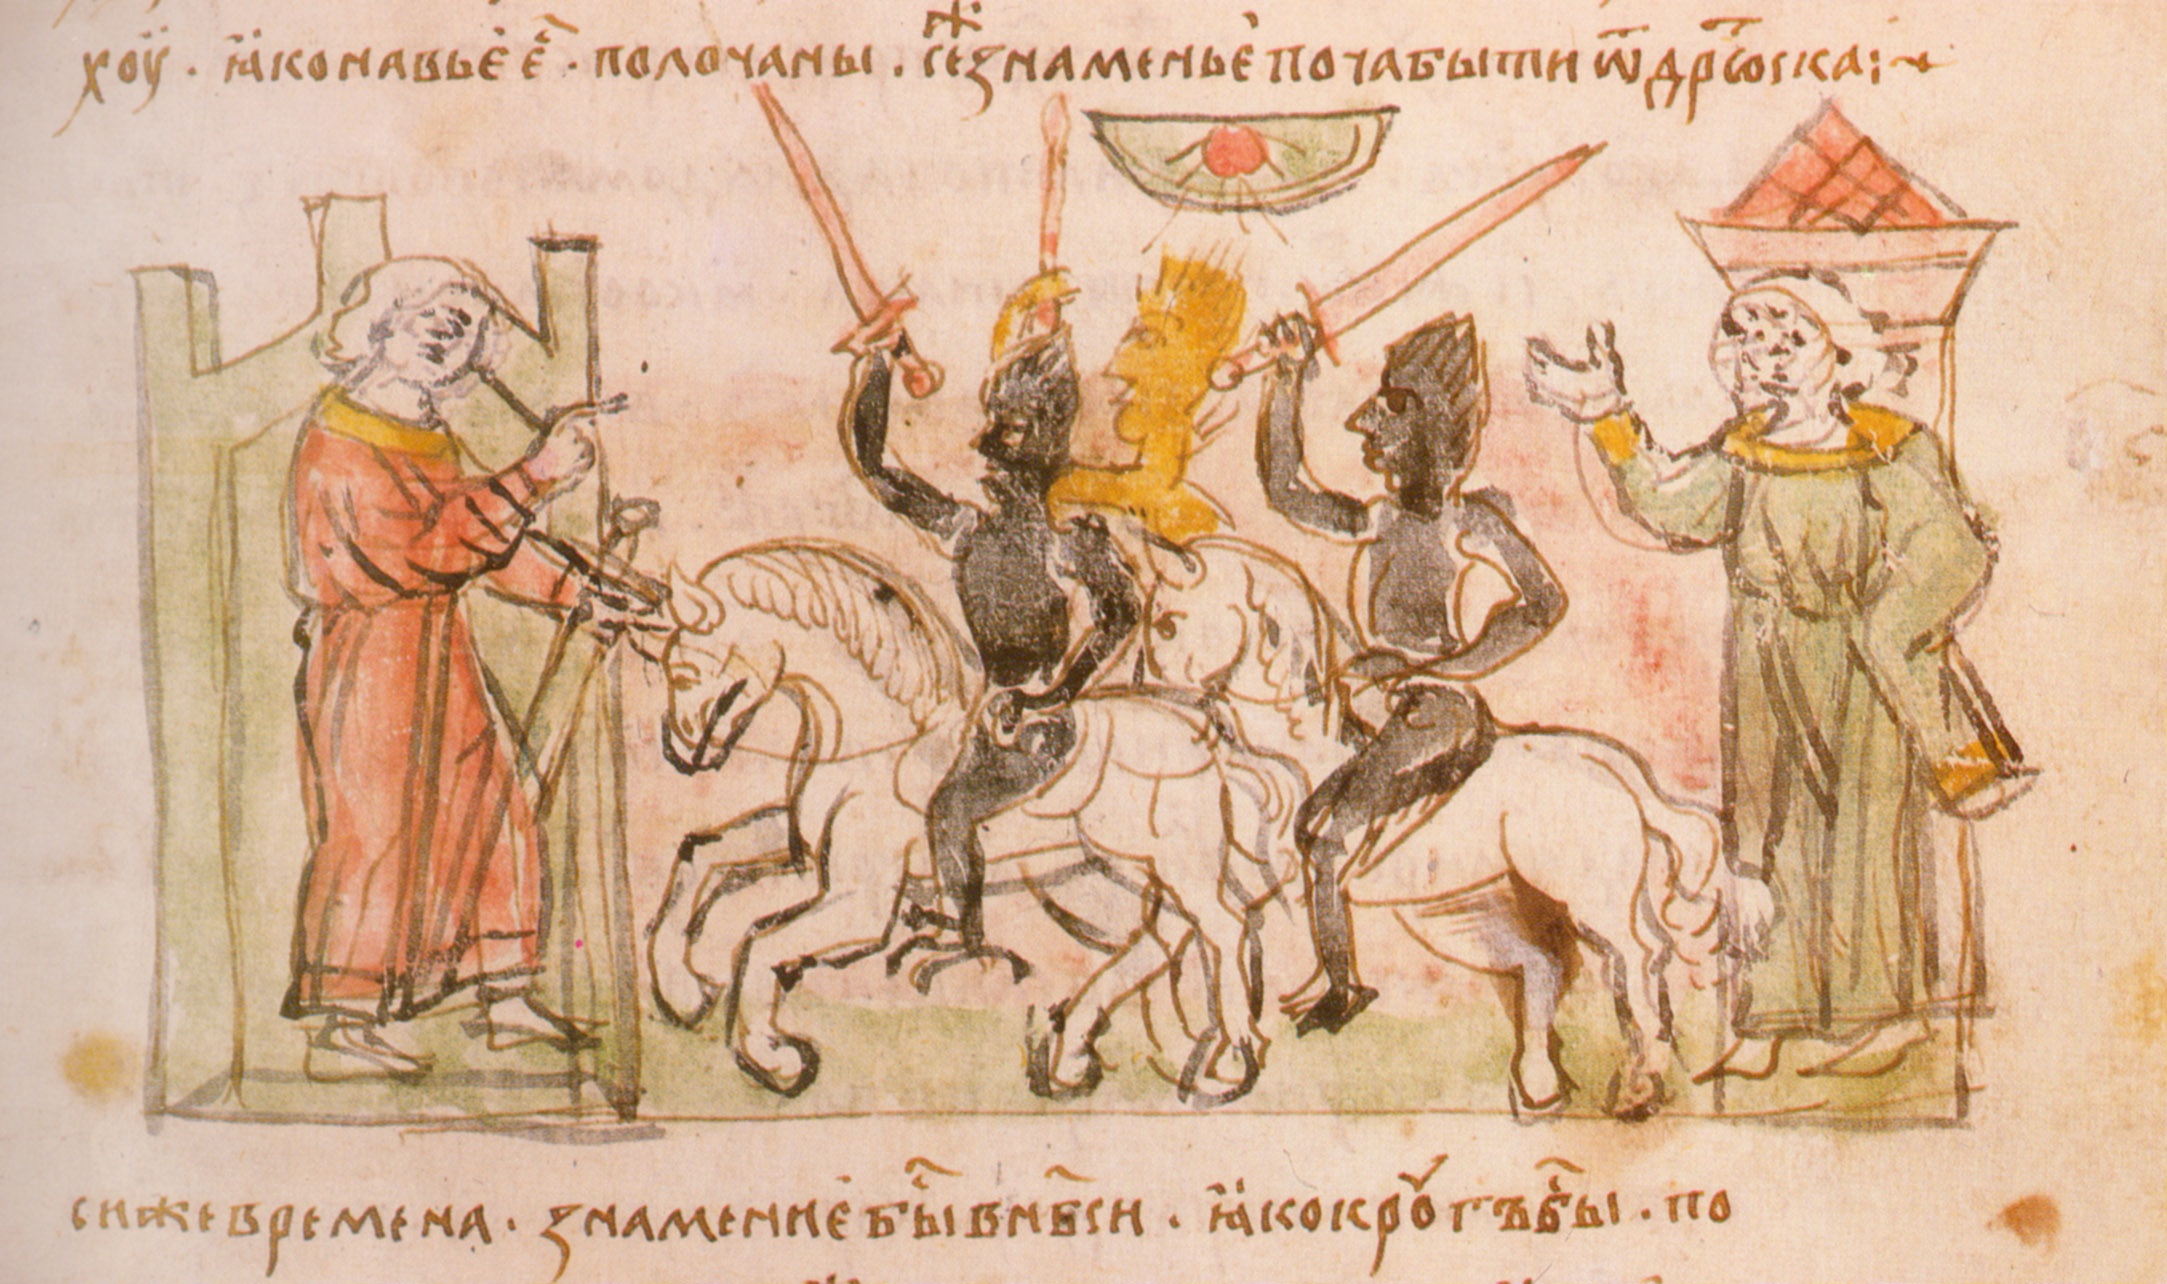 хоу · ꙗко навье є҃ · полочаны · се ж знаменьє поча быти ѿ дрьюска ⁘
си же времена · знамениє бы̑ в нб҃си · ꙗко кроугъ бы̑ · по